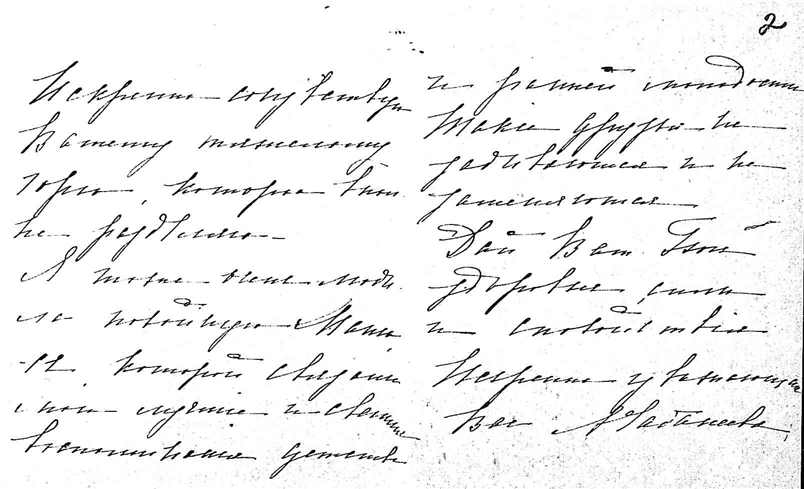 2
Искренно сочувствую
Вашему тяжелому
горю, которое вполне
не раздѣлимо
Я тоже очень люби
ла покойную Машу,
съ которой связаны
мои лучшіе и свѣтлые
воспоминанія дѣтства
и ранней молодости
Такіе друзья не
забываются и не
замѣняются
Дай Вам Богъ
здоровье, силы
и спокойствія
Искренно уважающая
Вас